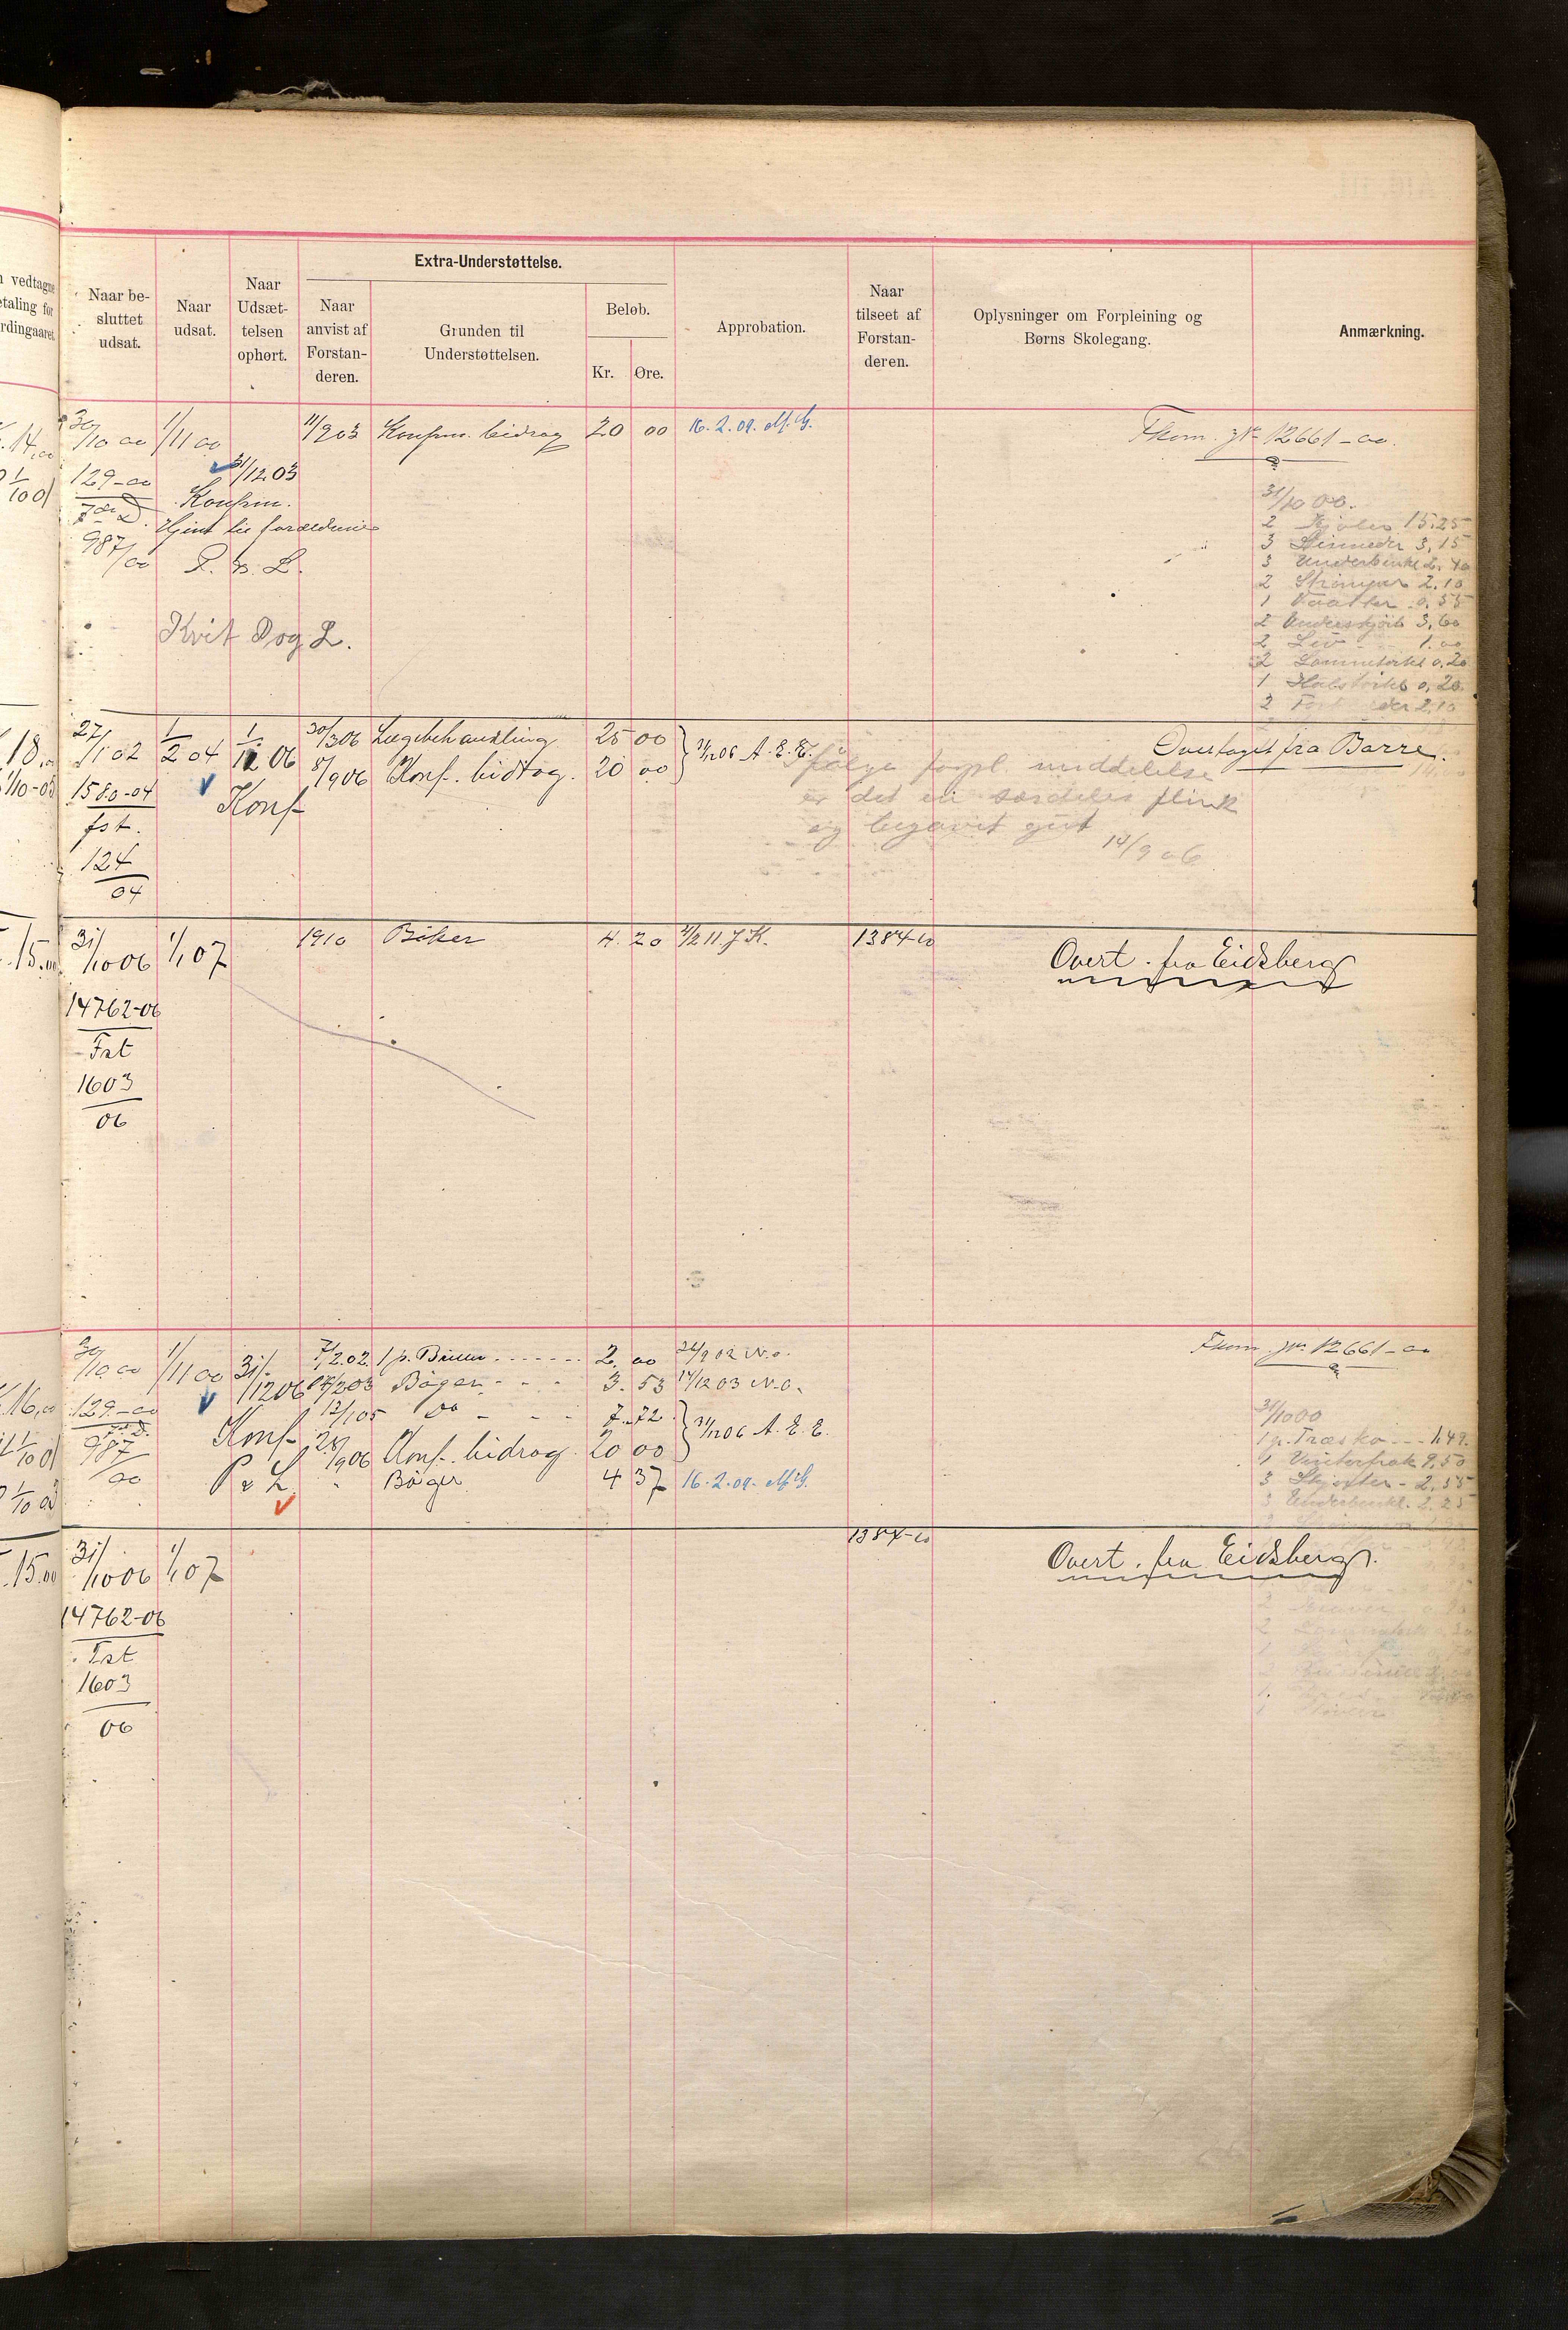 n vedtagne
etaling for
rdingaaret.
Naar be-
sluttet
udsat.
Naar
udsat.
Naar
Udsæt-
telsen
ophørt.
Extra-Understøttelse.
Naar
anvist af
Forstan-
deren.
Grunden til
Understøttelsen.
Beløb.
Kr. Øre.
Approbation.
Naar
tilseet af
Forstan-
deren.
Oplysninger om Forpleining og
Børns Skolegang.
Anmærkning.
14,00
1/10 01
30/10 00 1/11 00 11/9 03 Konfirm. bidrag 20 00 16.2.09. M.G.
Fkom. jr. 12661-00.
31/12 03
129-00
Konfirm.
987/00
Hjem til forældrene
P. & L.
Kvit P og L.
31/10 00.
2 Kjoler 15.25
3 3,15
3 Underbenkl 2.40
2 Strømper 2.10
1 0.55
2 Underskjørt 3,60
2 Liv 1.00
2 Lommetørkl 0,20
1 Halstørkl 0,20
2 2.10
18,
1/10-05
27/1 02 1/2 04 1/12 06 30/3 06 Lægebehandling 25 00
8/9 06 Konf. bidrag. 20 00
31/12 06 A.E.E.
Overtaget fra Borre.
1580-04
fst.
124
04
Konf
Ifølge forpl. meddelelse
er det en særdeles flink
og begavet gut
14/9 06
15.00
31/10 06 1/1 07 1910 Bøker 4.20 4/2 11 J K. 1384-10
Overt. fra Eidsberg
14762-06
Fst
1603
06
16,00
1/10 01
1/10 03
30/10 00 1/11 00 31/12 06 7/2 02. 1 p. Briller 2. 00 24/9 02 N.O.
Fkom. jr. 12661-00
203 Bøger 3.53 14/12 03 N.O.
12/1 05 Do 7.72
28/9 06 Konf. bidrag 20 00
31/12 06 A.E.E.
" Bøger 4 37 16.2.09. M.G.
129.-00
987
00
Konf
P & L
31/10 00
1 p. Træsko 1,49.
1 Vinterfrak 9,50
3 Skjorter - 2.55
3 Underbenkl. 2.25
15.00
31/10 06 1/1 07 1384-10
Overt. fra Eidsberg.
14762-06
Fst
1603
06